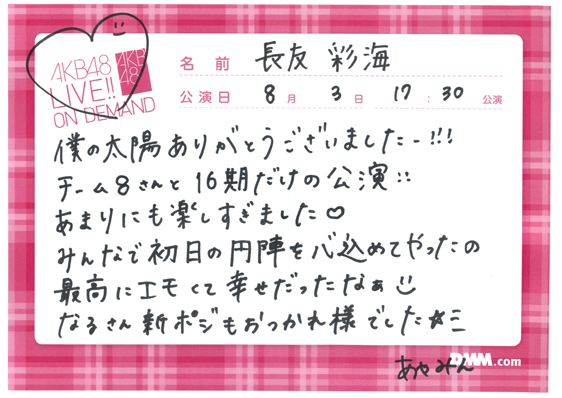 AKB48
LIVE!!
ON DEMAND
AKB
48
名前 長友 彩海
公演日 8月 3日 17:30 公演
僕の太陽ありがとうございましたー!!!
チーム8さんと16期だけの公演!!
あまりにも楽しすぎました♡
みんなで初日の円陣を心込めてやったの
最高にエモくて幸せだったなぁ
なるさん新ポジもおつかれ様でした☆ミ
あやみん
DMM.com